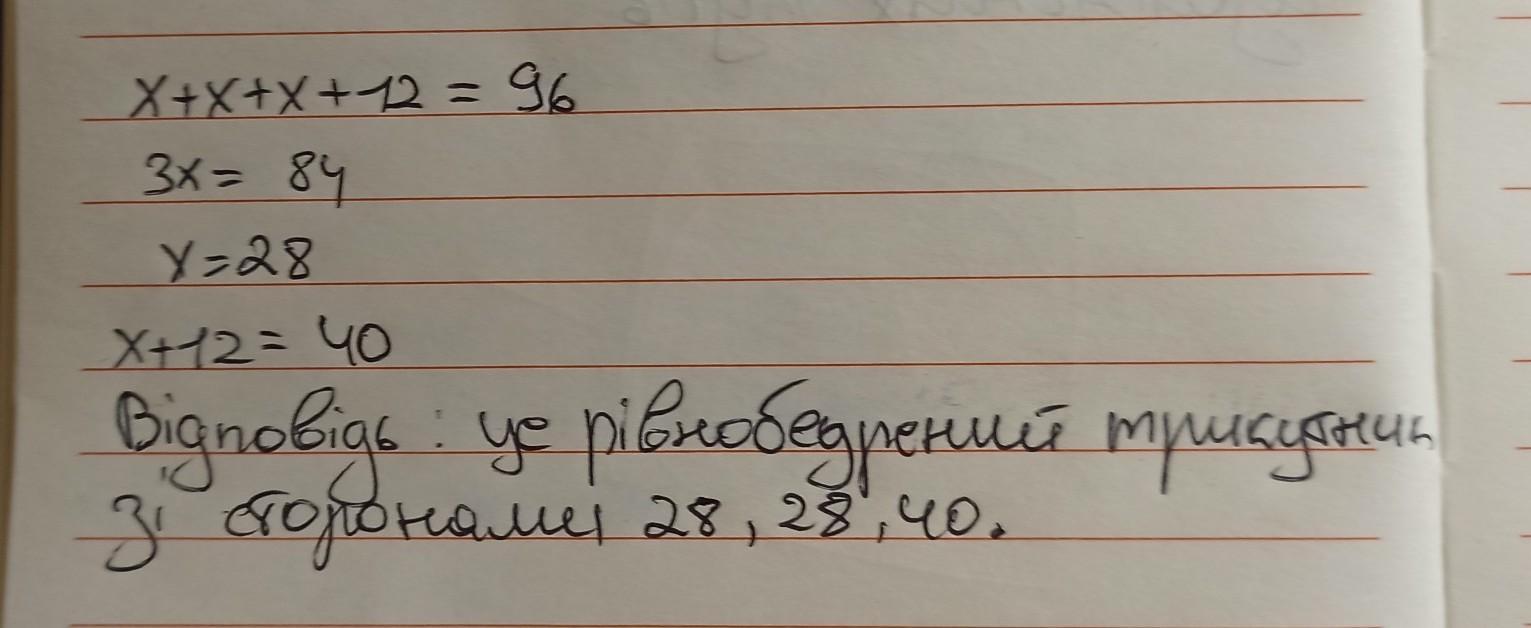 x+x+x+12 = 96
3x = 84
x=28
x+12= 40
Відповідь: це рівнобедрений трикутник
зі сторонами 28, 28, 40.